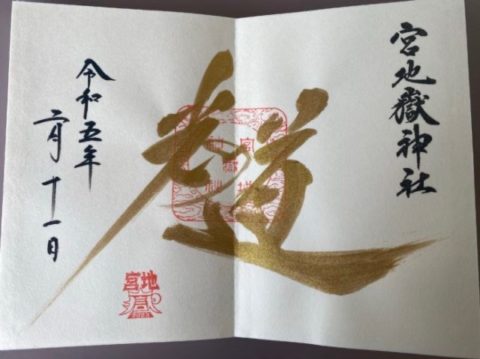 宮地嶽神社
光道
令和五年
二月十一日
宮地